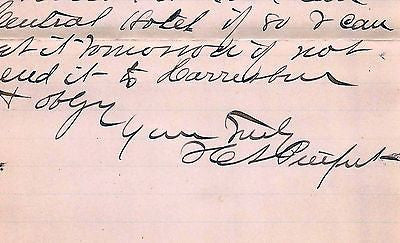 Central Hotel if so I can
get it Tomorrow if not
end it to Harresbur
& oblge
Yours Truly